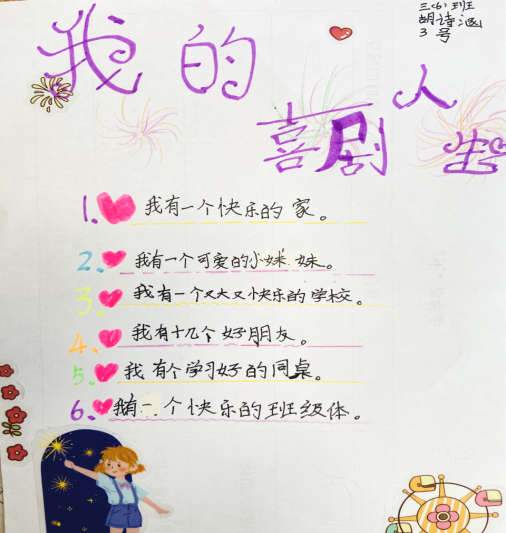 三(6)班
胡诗涵
3号
我的
喜剧人生
1. 我有一个快乐的家。
2. 我有一个可爱的小妹妹。
3. 我有一个又大又快乐的学校。
4. 我有十几个好朋友。
5. 我有个学习好的同桌。
6. 我有一个快乐的班级体。